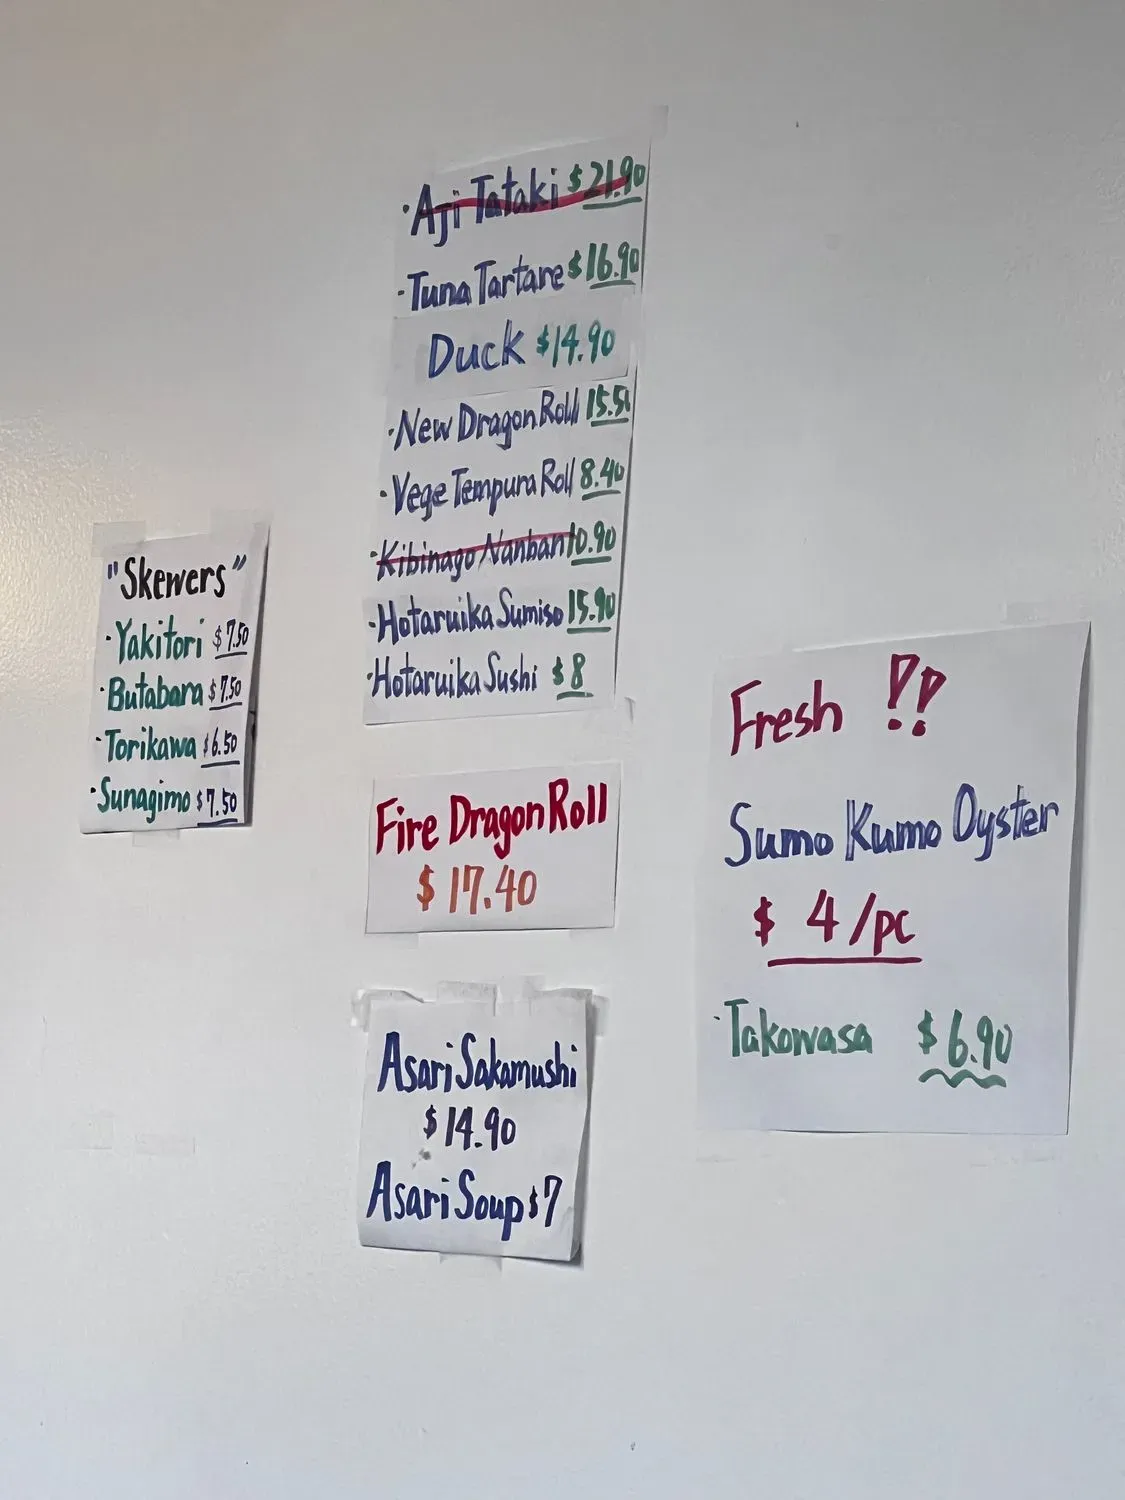 "Skewers"
·Yakitori $7.50
·Butabara $7.50
·Torikawa $6.50
·Sunagimo $7.50
·Aji Tataki $21.90
·Tuna Tartare $16.90
Duck $14.90
·New Dragon Roll 15.50
·Vege Tempura Roll 8.40
·Kibinago Nanban 10.90
·Hotaruika Sumiso 15.90
·Hotaruika Sushi $8
Fire Dragon Roll
$17.40
Asari Sakamushi
$14.90
Asari Soup $7
Fresh !!
Sumo Kumo Oyster
$4/pc
·Takowasa $6.90